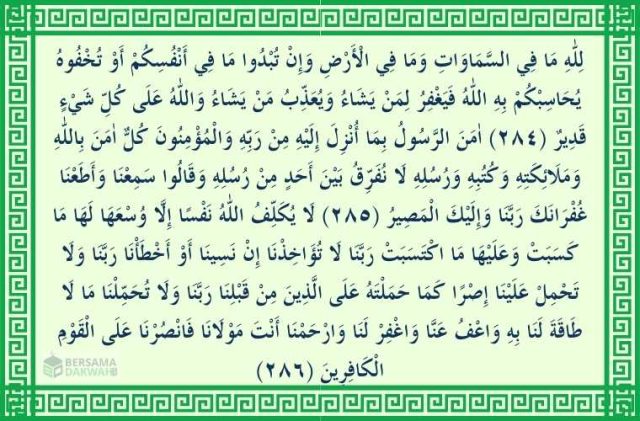 لِلّٰهِ مَا فِي السَّمَاوَاتِ وَمَا فِي الْأَرْضِ وَإِنْ تُبْدُوا مَا فِي أَنْفُسِكُمْ أَوْ تُخْفُوهُ
يُحَاسِبْكُمْ بِهِ اللّٰهُ فَيَغْفِرُ لِمَنْ يَشَاءُ وَيُعَذِّبُ مَنْ يَشَاءُ وَاللّٰهُ عَلَى كُلِّ شَيْءٍ
قَدِيرٌ (٢٨٤) اٰمَنَ الرَّسُولُ بِمَا أُنْزِلَ إِلَيْهِ مِنْ رَبِّهِ وَالْمُؤْمِنُونَ كُلٌّ اٰمَنَ بِاللّٰهِ
وَمَلَائِكَتِهِ وَكُتُبِهِ وَرُسُلِهِ لَا نُفَرِّقُ بَيْنَ أَحَدٍ مِنْ رُسُلِهِ وَقَالُوا سَمِعْنَا وَأَطَعْنَا
غُفْرَانَكَ رَبَّنَا وَإِلَيْكَ الْمَصِيرُ (٢٨٥) لَا يُكَلِّفُ اللّٰهُ نَفْسًا إِلَّا وُسْعَهَا لَهَا مَا
كَسَبَتْ وَعَلَيْهَا مَا اكْتَسَبَتْ رَبَّنَا لَا تُؤَاخِذْنَا إِنْ نَسِينَا أَوْ أَخْطَأْنَا رَبَّنَا وَلَا
تَحْمِلْ عَلَيْنَا إِصْرًا كَمَا حَمَلْتَهُ عَلَى الَّذِينَ مِنْ قَبْلِنَا رَبَّنَا وَلَا تُحَمِّلْنَا مَا لَا
طَاقَةَ لَنَا بِهِ وَاعْفُ عَنَّا وَاغْفِرْ لَنَا وَارْحَمْنَا أَنْتَ مَوْلَانَا فَانْصُرْنَا عَلَى الْقَوْمِ
الْكَافِرِينَ (٢٨٦)
BERSAMA
DAKWAH